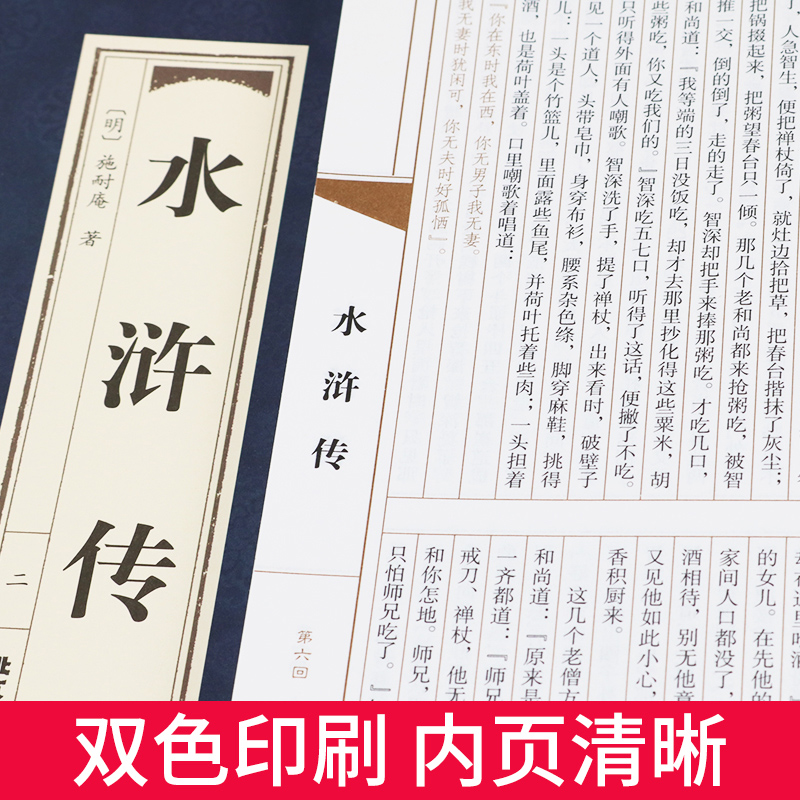 水浒传
〔明〕施耐庵 著
二
水浒传
第六回
，人急智生，便把禅杖倚了，就灶边拾把草，把春台揩抹了灰尘；
把锅掇起来，把粥望春台只一倾。那几个老和尚都来抢粥吃，被智
推一交，倒的倒了，走的走了。智深却把手来捧那粥吃。才吃几口，
和尚道：『我等端的三日没饭吃，却才去那里抄化得这些粟米，胡
些粥吃，你又吃我们的。』智深吃五七口，听得了这话，便撇了不吃。
只听得外面有人嘲歌。智深洗了手，提了禅杖，出来看时，破壁子
见一个道人，头带皂巾，身穿布衫，腰系杂色绦，脚穿麻鞋，挑得
儿：一头是个竹篮儿，里面露些鱼尾，并荷叶托着些肉；一头担着
酒，也是荷叶盖着。口里嘲歌着唱道：
『你在东时我在西，你无男子我无妻。
我无妻时犹闲可，你无夫时好孤恓』。
的女儿。在先他
家间人口都没了，
酒相待，别无他意
又见他如此小心，
香积厨来。
这几个老僧方
和尚道：『原来是
一齐都道：『师
戒刀、禅杖，他无
和你怎地。师兄，
只怕师兄吃了。』
双色印刷 内页清晰